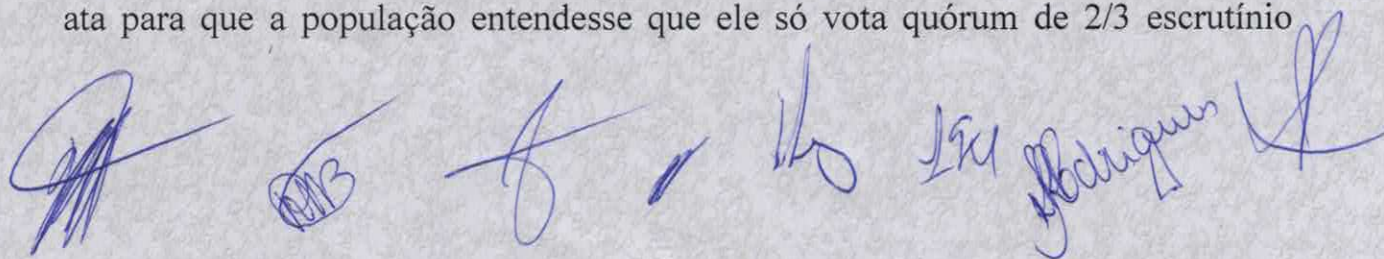 ata para que a população entendesse que ele só vota quórum de 2/3 escrutínio
Rodrigues